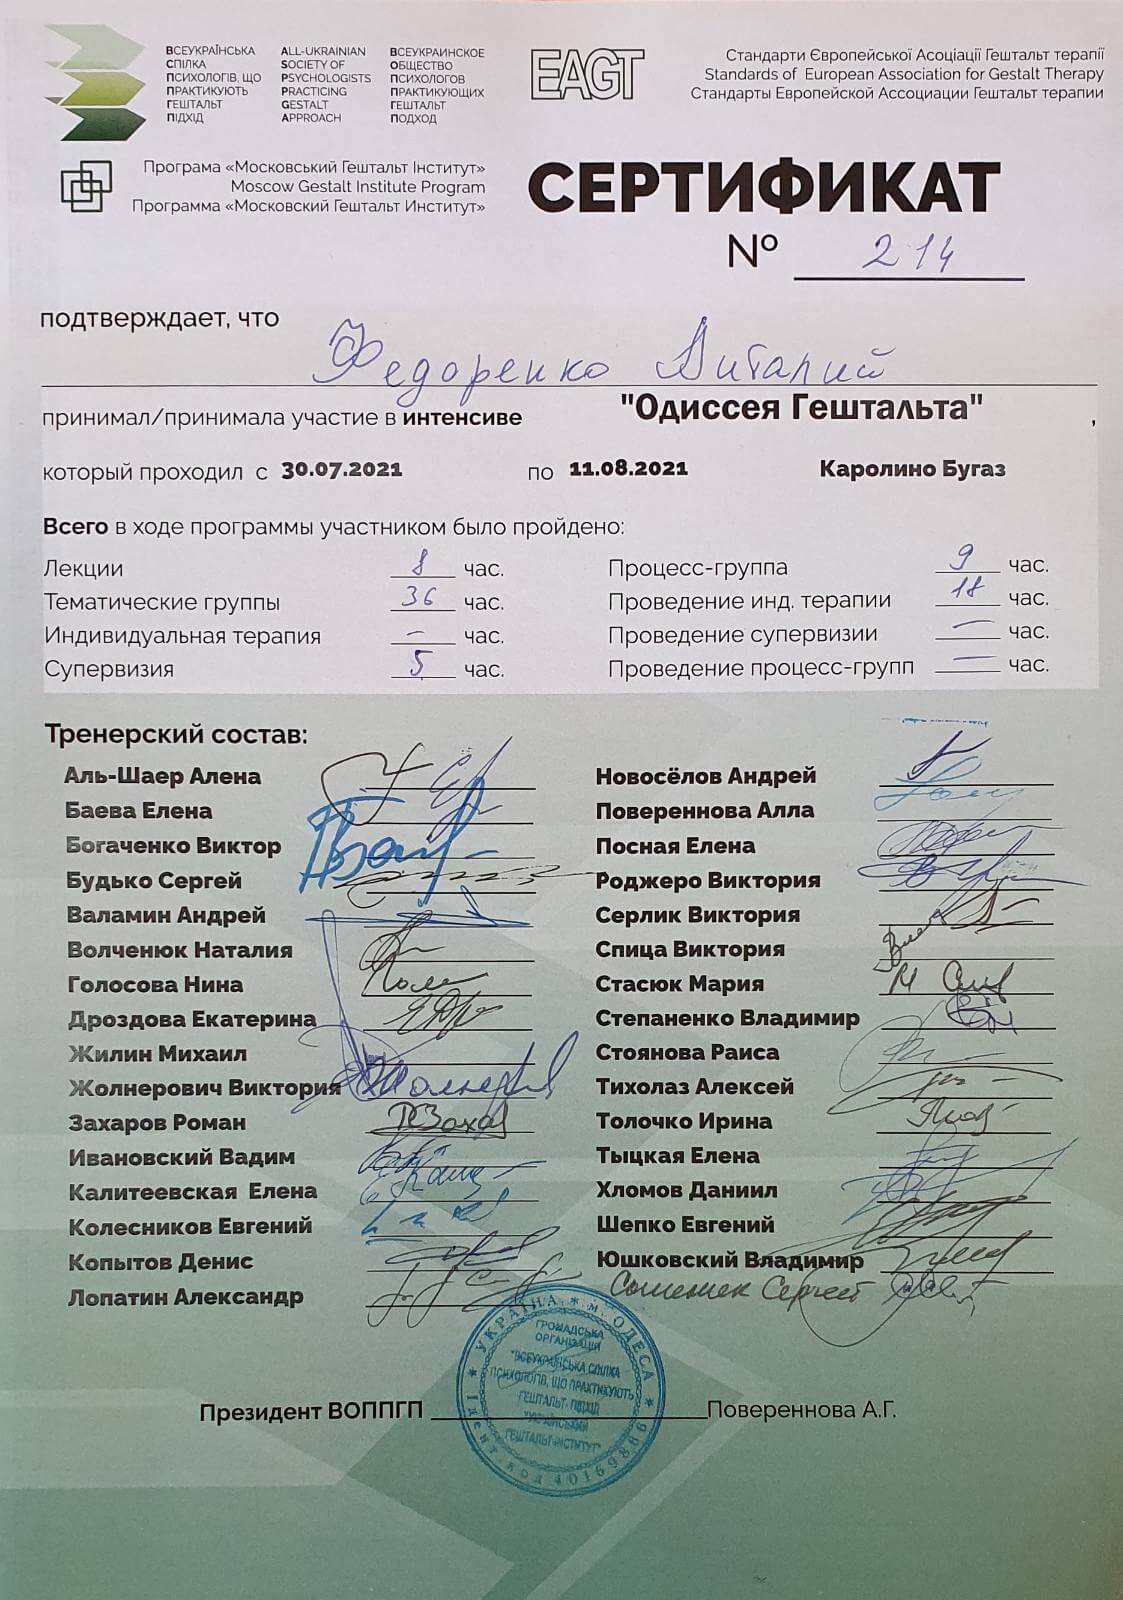 ВСЕУКРАЇНСЬКА
СПІЛКА
ПСИХОЛОГІВ, ЩО
ПРАКТИКУЮТЬ
ГЕШТАЛЬТ
ПІДХІД
ALL-UKRAINIAN
SOCIETY OF
PSYCHOLOGISTS
PRACTICING
GESTALT
APPROACH
ВСЕУКРАИНСКОЕ
ОБЩЕСТВО
ПСИХОЛОГОВ
ПРАКТИКУЮЩИХ
ГЕШТАЛЬТ
ПОДХОД
EAGT
Стандарти Європейської Асоціації Гештальт терапії
Standards of European Association for Gestalt Therapy
Стандарты Европейской Ассоциации Гештальт терапии
Програма «Московський Гештальт Інститут»
Moscow Gestalt Institute Program
Программа «Московский Гештальт Институт»
СЕРТИФИКАТ
№ 214
подтверждает, что
Федоренко Виталий
принимал/принимала участие в интенсиве "Одиссея Гештальта",
который проходил с 30.07.2021 по 11.08.2021 Каролино Бугаз
Всего в ходе программы участником было пройдено:
Лекции 8 час. Процесс-группа 9 час.
Тематические группы 36 час. Проведение инд. терапии 18 час.
Индивидуальная терапия – час. Проведение супервизии – час.
Супервизия 5 час. Проведение процесс-групп – час.
Тренерский состав:
Аль-Шаер Алена Новосёлов Андрей
Баева Елена Повереннова Алла
Богаченко Виктор Посная Елена
Будько Сергей Роджеро Виктория
Валамин Андрей Серлик Виктория
Волченюк Наталия Спица Виктория
Голосова Нина Стасюк Мария
Дроздова Екатерина Степаненко Владимир
Жилин Михаил Стоянова Раиса
Жолнерович Виктория Тихолаз Алексей
Захаров Роман Толочко Ирина
Ивановский Вадим Тыцкая Елена
Калитеевская Елена Хломов Даниил
Колесников Евгений Шепко Евгений
Копытов Денис Юшковский Владимир
Лопатин Александр Сергей
УКРАЇНА * м. ОДЕСА *
ГРОМАДСЬКА
ОРГАНІЗАЦІЯ
"ВСЕУКРАЇНСЬКА СПІЛКА
ПСИХОЛОГІВ, ЩО ПРАКТИКУЮТЬ
ГЕШТАЛЬТ-ПІДХІД
"УКРАЇНСЬКИЙ
ГЕШТАЛЬТ-ІНСТИТУТ"
Ідент. код 40169886
Президент ВОППГП Повереннова А.Г.